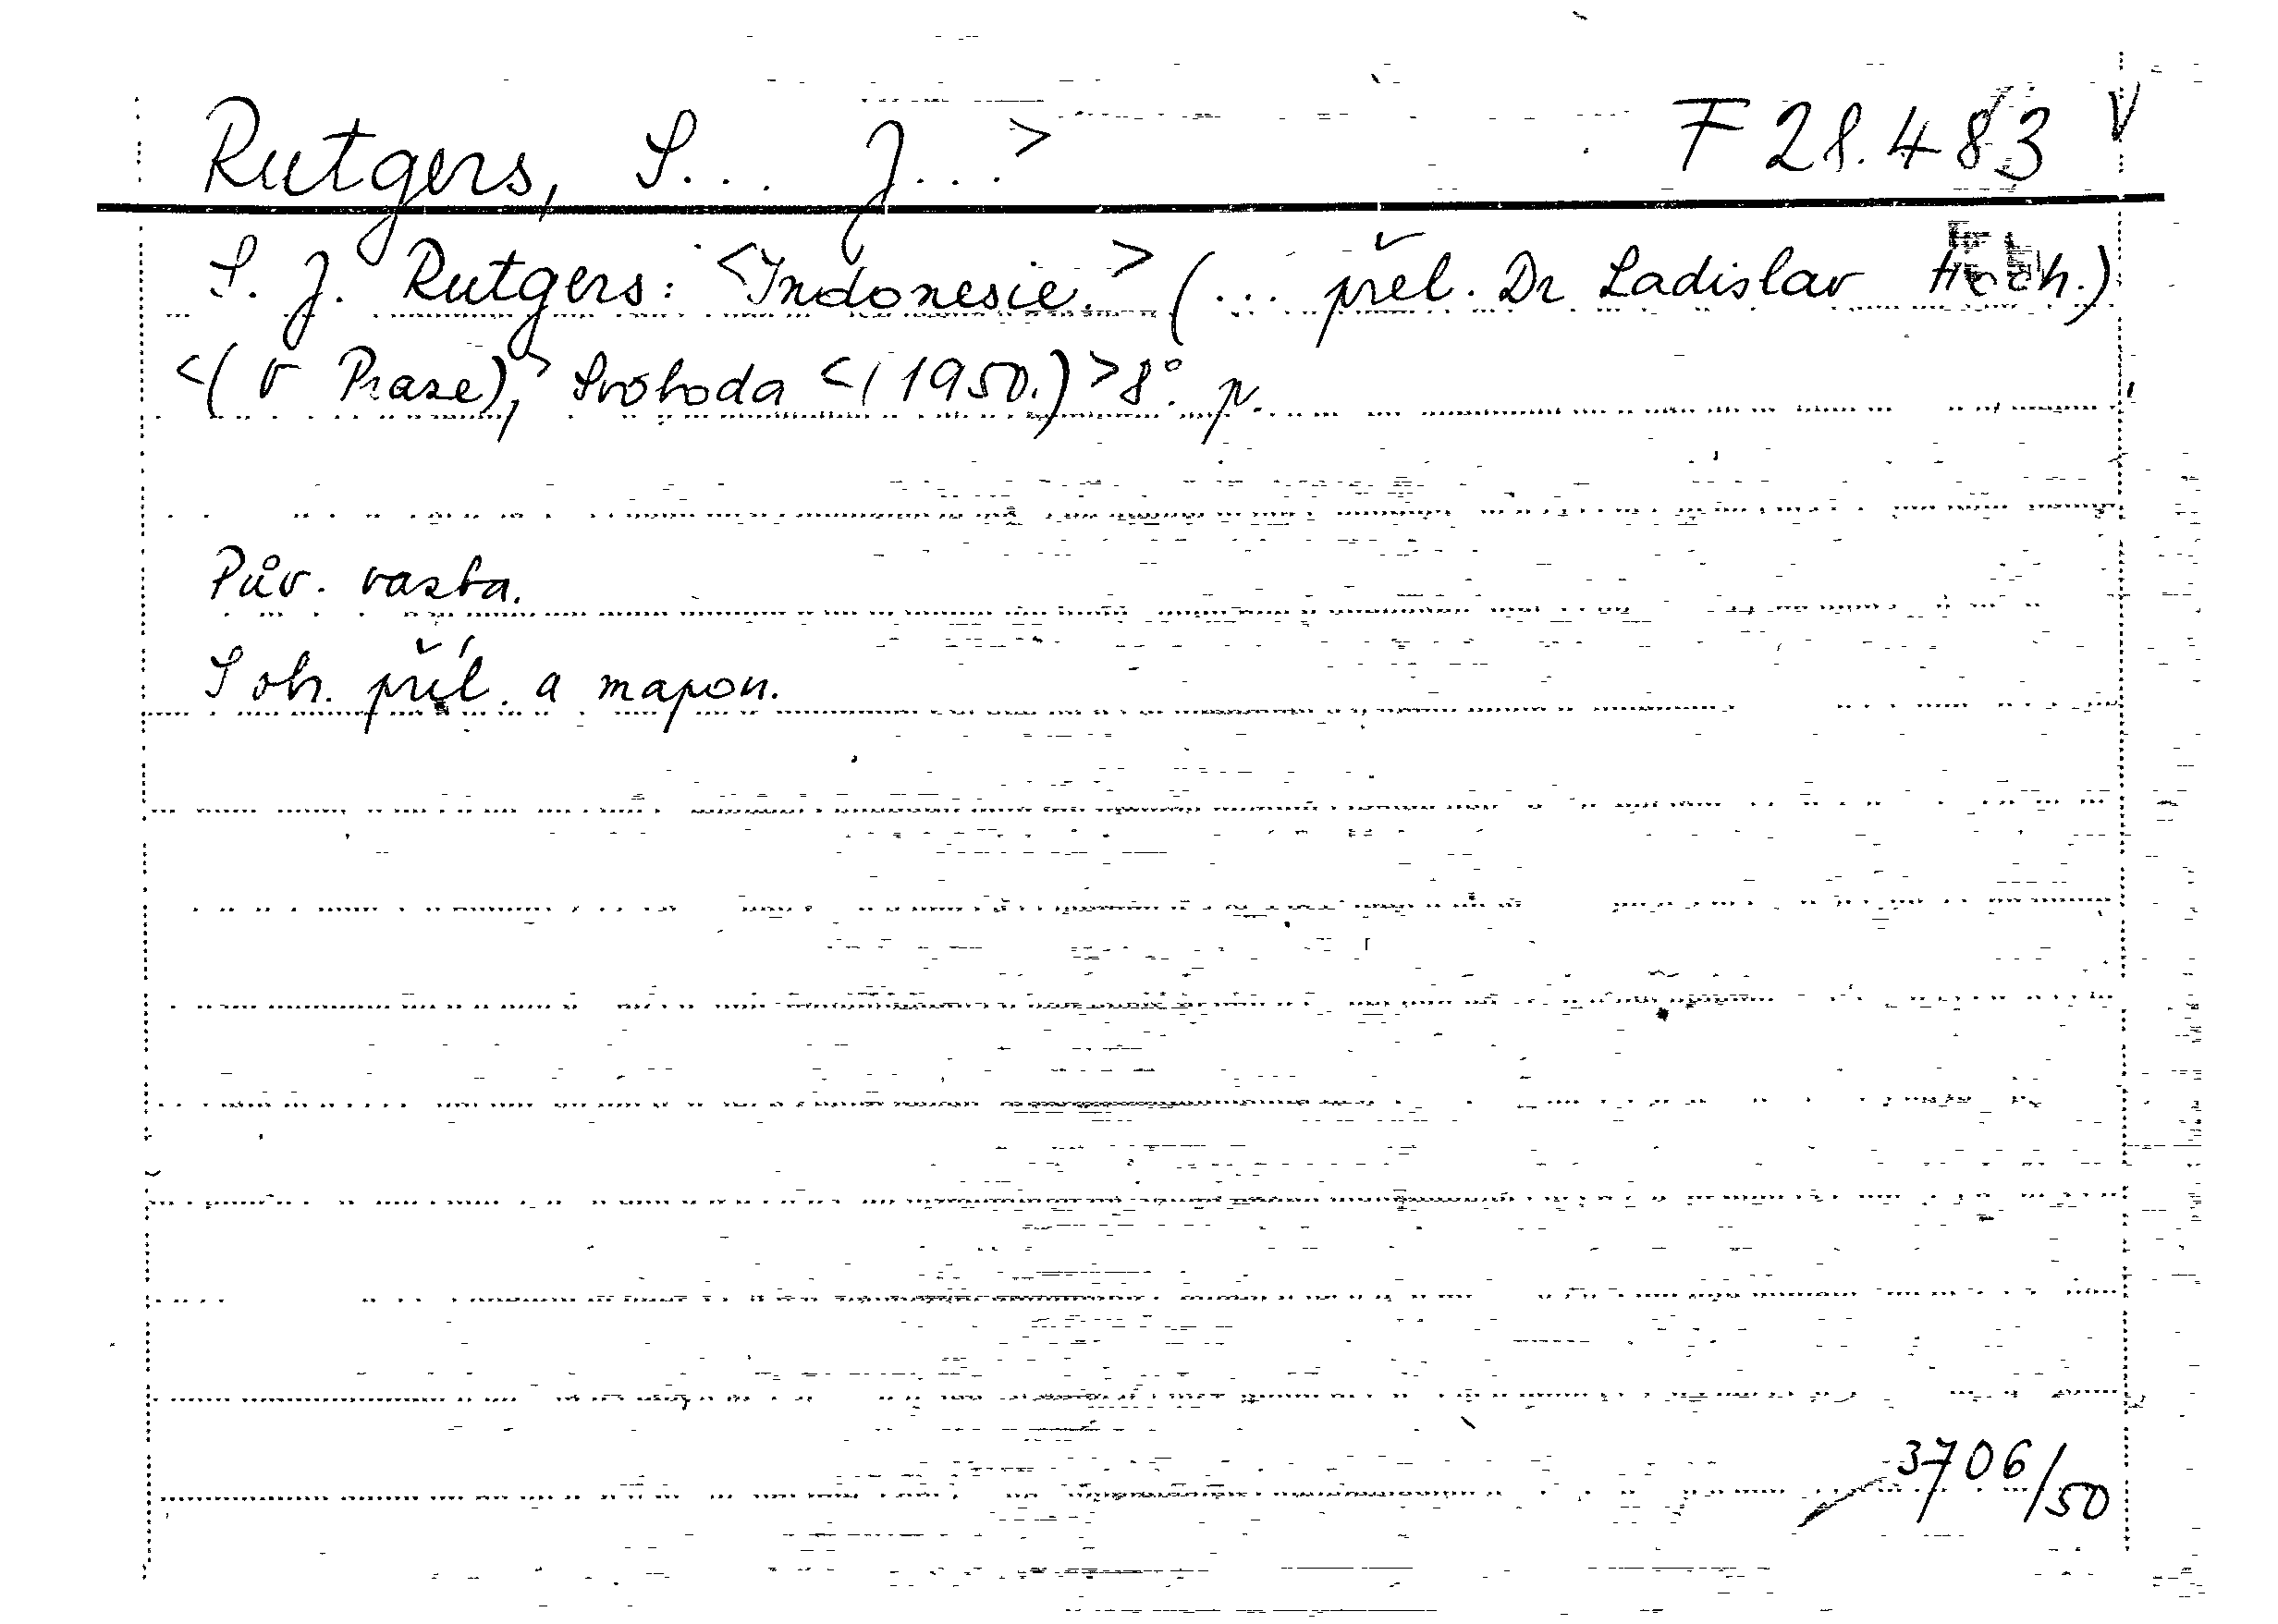 Rutgers, S... J...> F 28.483 V
S. J. Rutgers: <Indonesie.> (... přel. Dr Ladislav Hoch.)
<(V Praze),> Svoboda <(1950.)> 8°. p.
Pův. vazba.
S obr. příl. a mapou.
3706/50